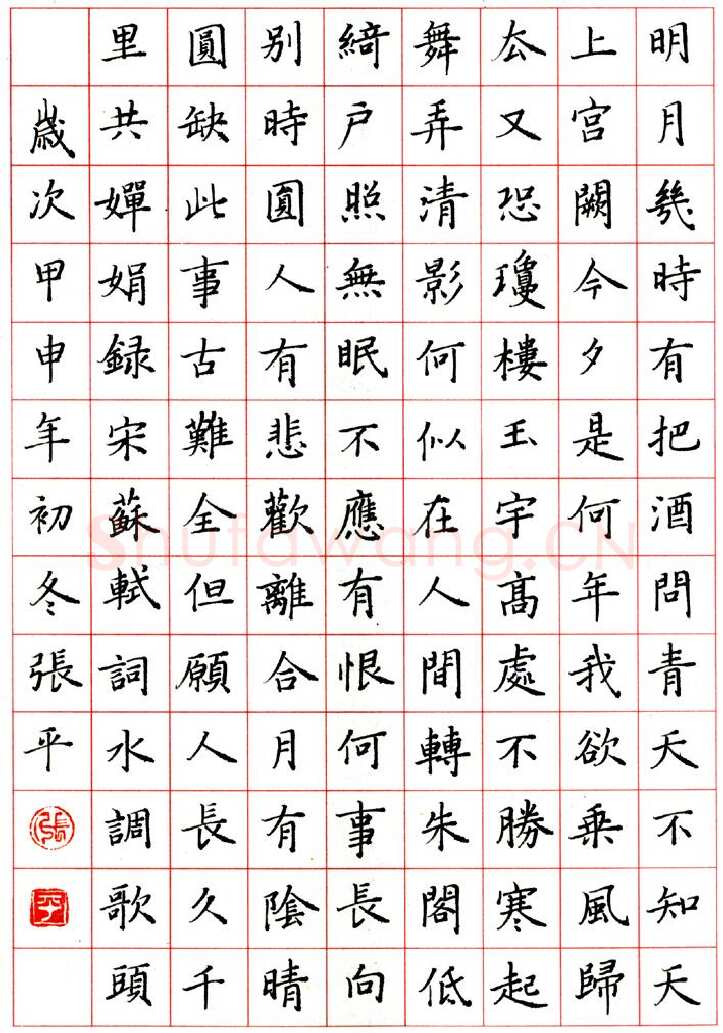 明月幾時有把酒問青天不知天
上宮闕今夕是何年我欲乘風歸
去又恐瓊樓玉宇高處不勝寒起
舞弄清影何似在人間轉朱閣低
綺户照無眠不應有恨何事長向
别時圓人有悲歡離合月有陰晴
圓缺此事古難全但願人長久千
里共嬋娟録宋蘇軾詞水調歌頭
歲次甲申年初冬張平
張
平
Shufawang.CN